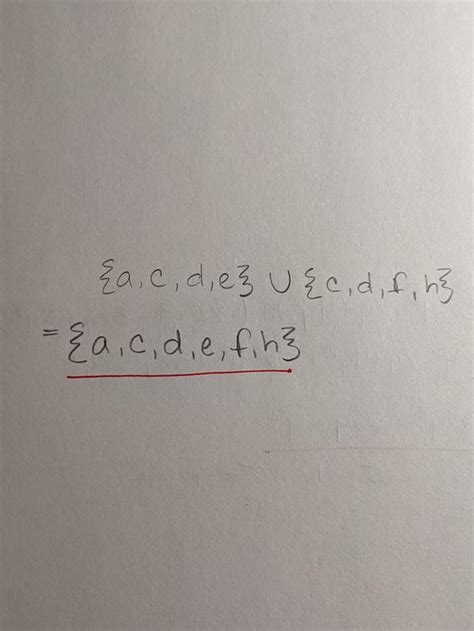 {a, c, d, e} ∪ {c, d, f, h}
= {a, c, d, e, f, h}